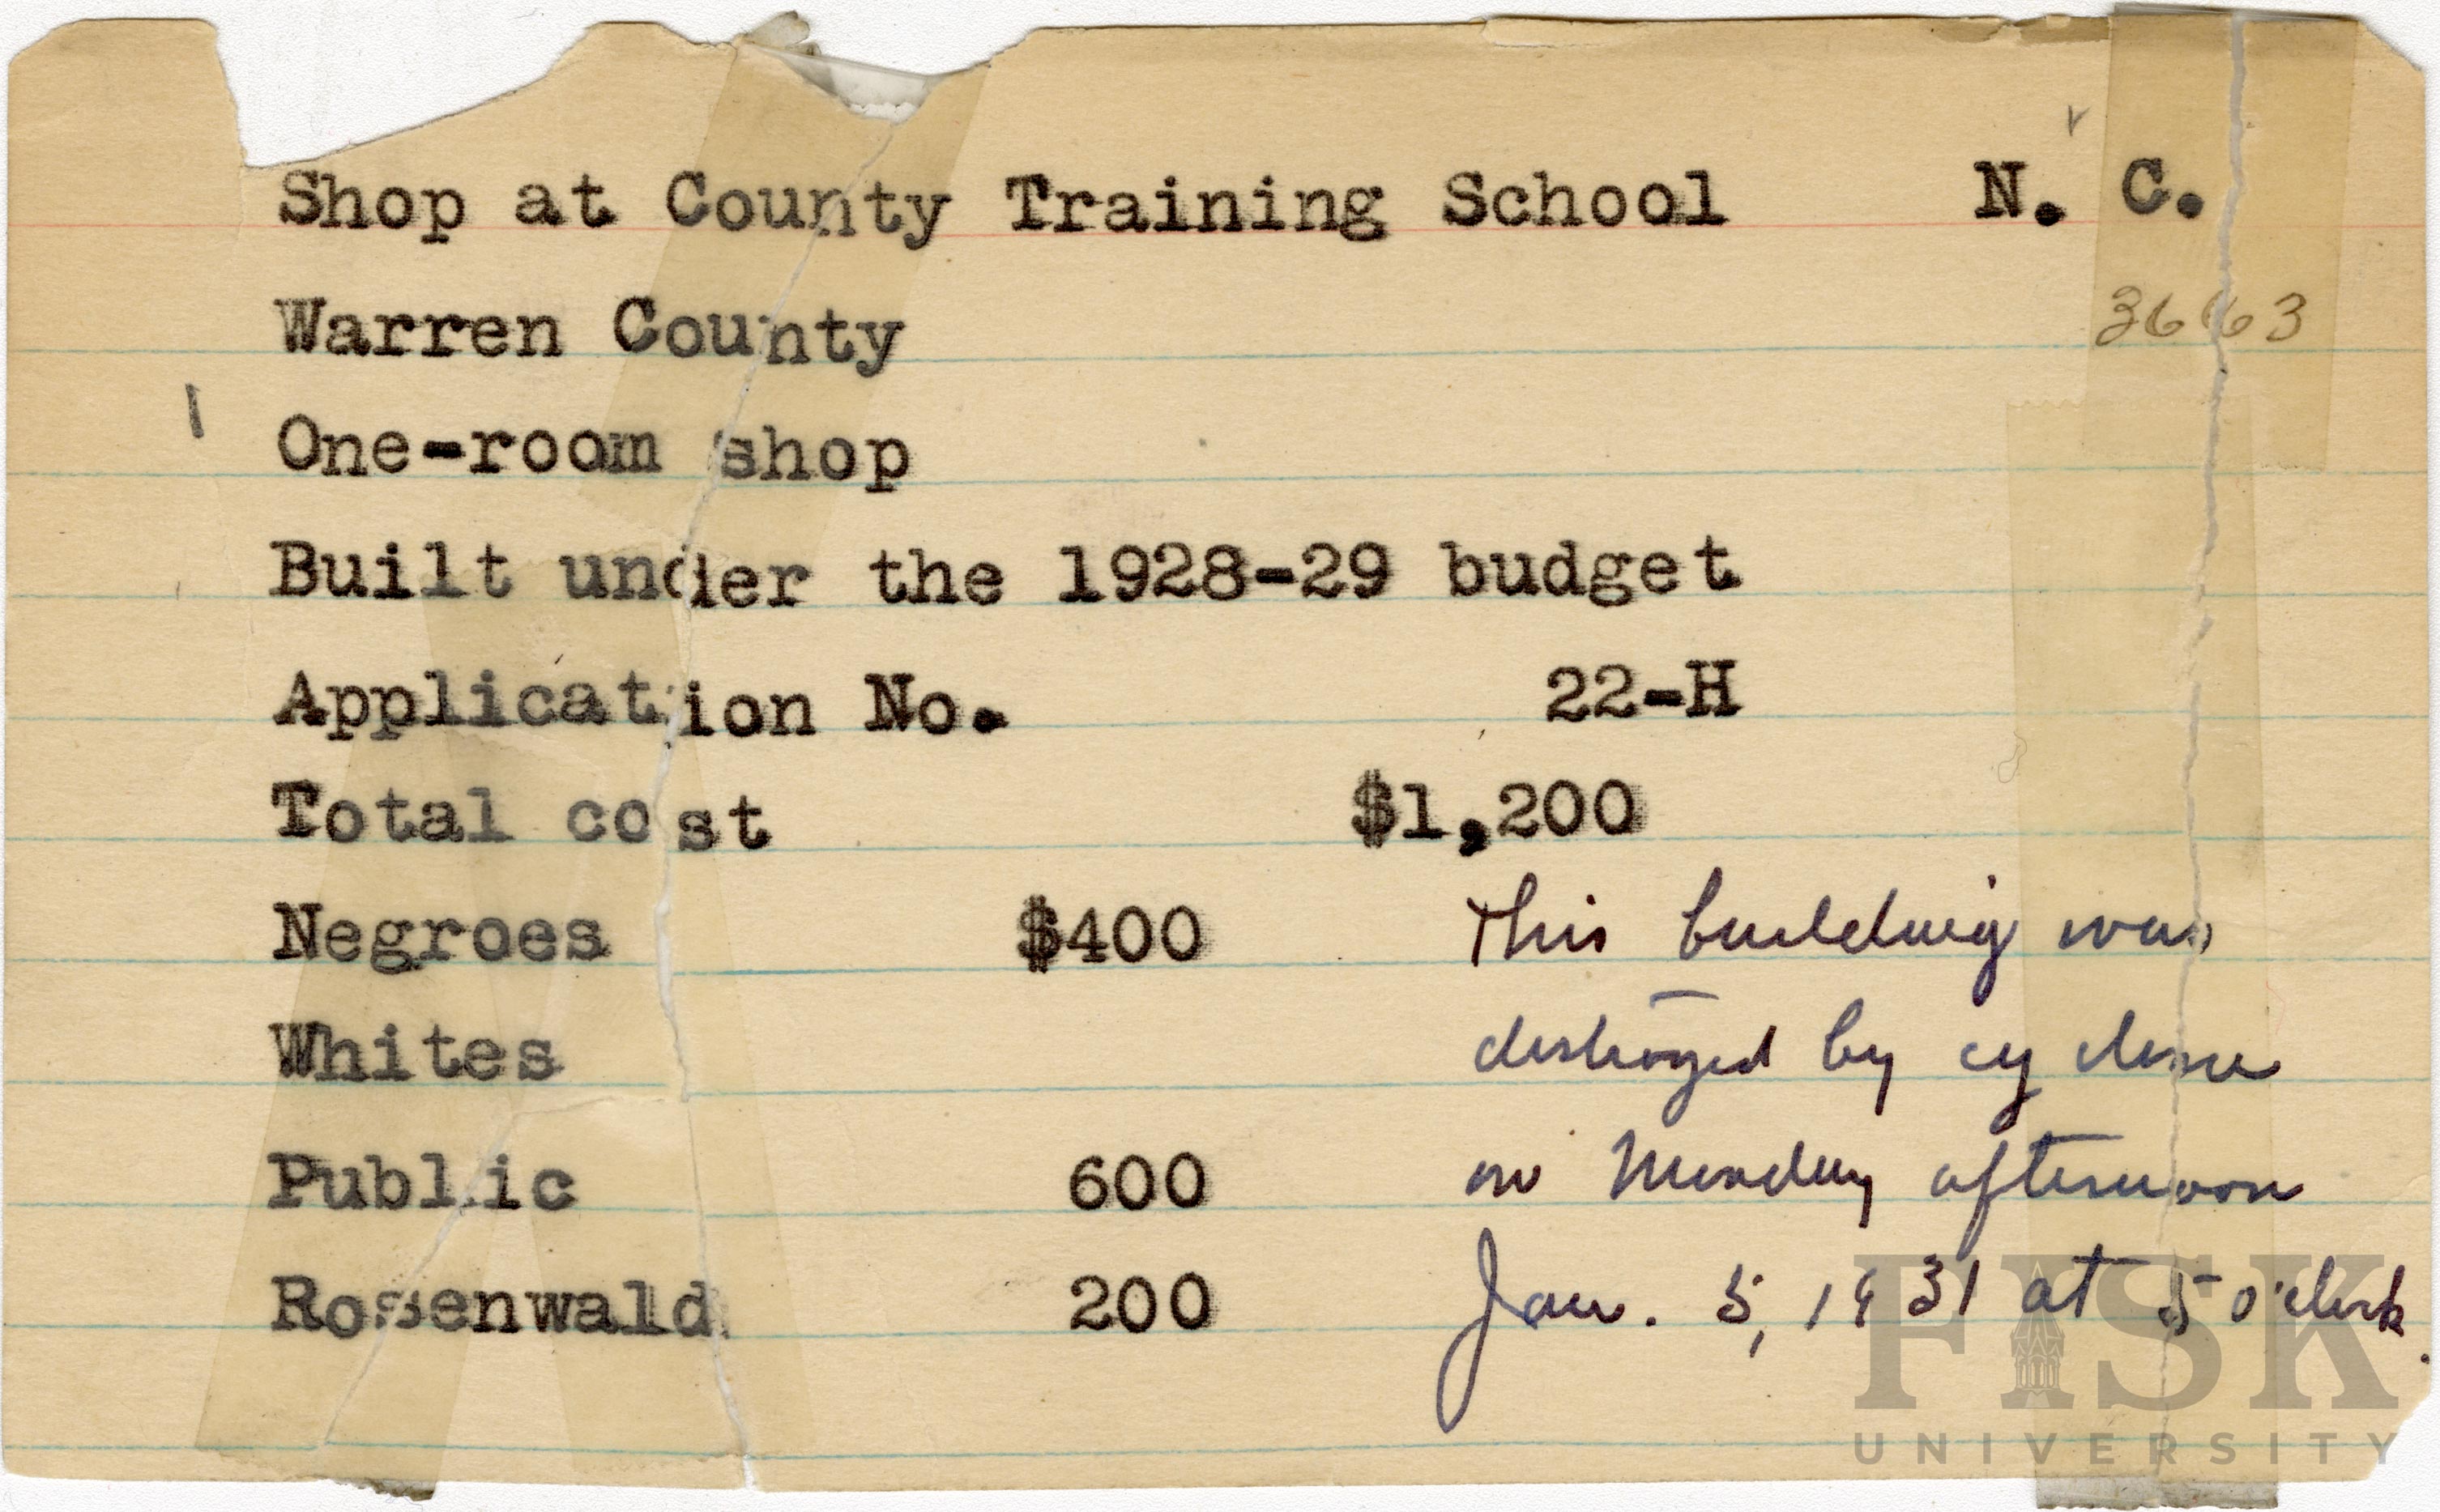 Shop at County Training School N. C.
Warren County 3663
One-room shop
Built under the 1928-29 budget
Application No. 22-H
Total cost $1,200
Negroes $400 This building was
Whites destroyed by cyclone
Public 600 on Monday afternoon
Rosenwald 200 Jan. 5, 1931 at 5 o'clock.
FISK
UNIVERSITY